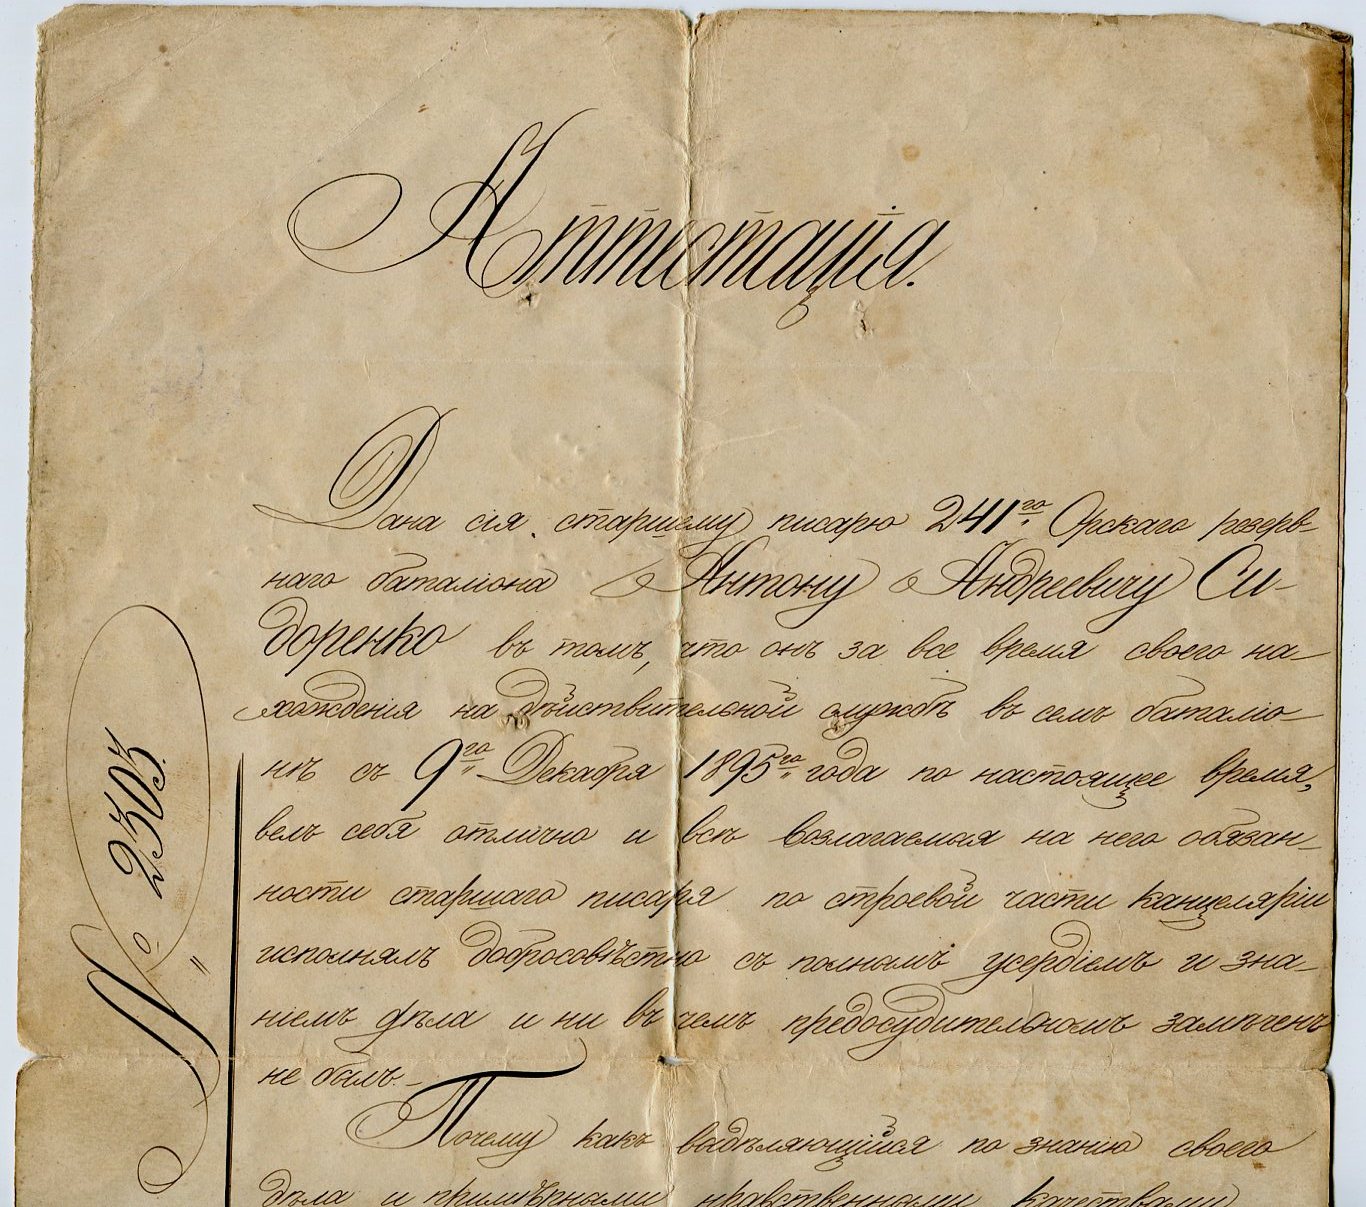 Аттестацiя.
Дана сiя старшему писарю 241го Орскаго резерв-
наго баталiона Антону Андреевичу Си-
доренко въ томъ, что онъ за все время своего на-
хожденiя на дѣйствительной службѣ въ семъ баталiо-
нѣ съ 9го Декабря 1895го года по настоящее время,
велъ себя отлично и всѣ возлагаемыя на него обязан-
ности старшаго писаря по строевой части канцелярiи
исполнялъ добросовѣстно съ полнымъ усердiемъ и зна-
нiемъ дѣла и ни въ чемъ предосудительномъ замѣченъ
не былъ.-
Почему какъ выдѣляющiйся по знанiю своего
дѣла и примѣрными нравственными качествами
№ 2303.